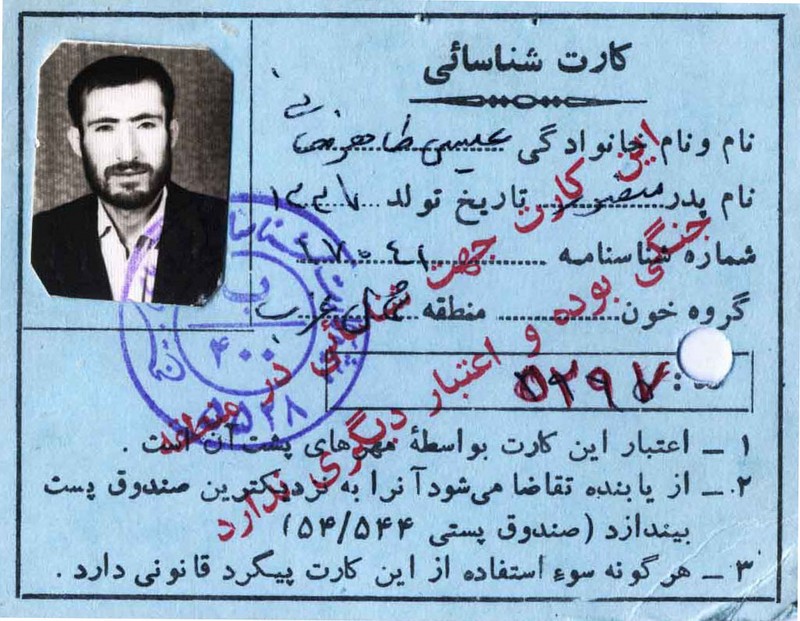 کارت شناسائی
نام و نام خانوادگی عیسی طاهر
نام پدر منصور تاریخ تولد ۱۳۳۷
شماره شناسنامه
گروه خون منطقه شمال غرب
۵۲۹۷
۱ ــ اعتبار این کارت بواسطهٔ مهرهای پشت آن است .
۲ ــ از یابنده تقاضا می‌شود آنرا به نزدیکترین صندوق پست
بیندازد (صندوق پستی ۵۴/۵۴۴)
۳ ــ هرگونه سوء استفاده از این کارت پیگرد قانونی دارد .
این کارت جهت شناسائی در منطقه
جنگی بوده و اعتبار دیگری ندارد
ب
۴۰۰
۵۲۸